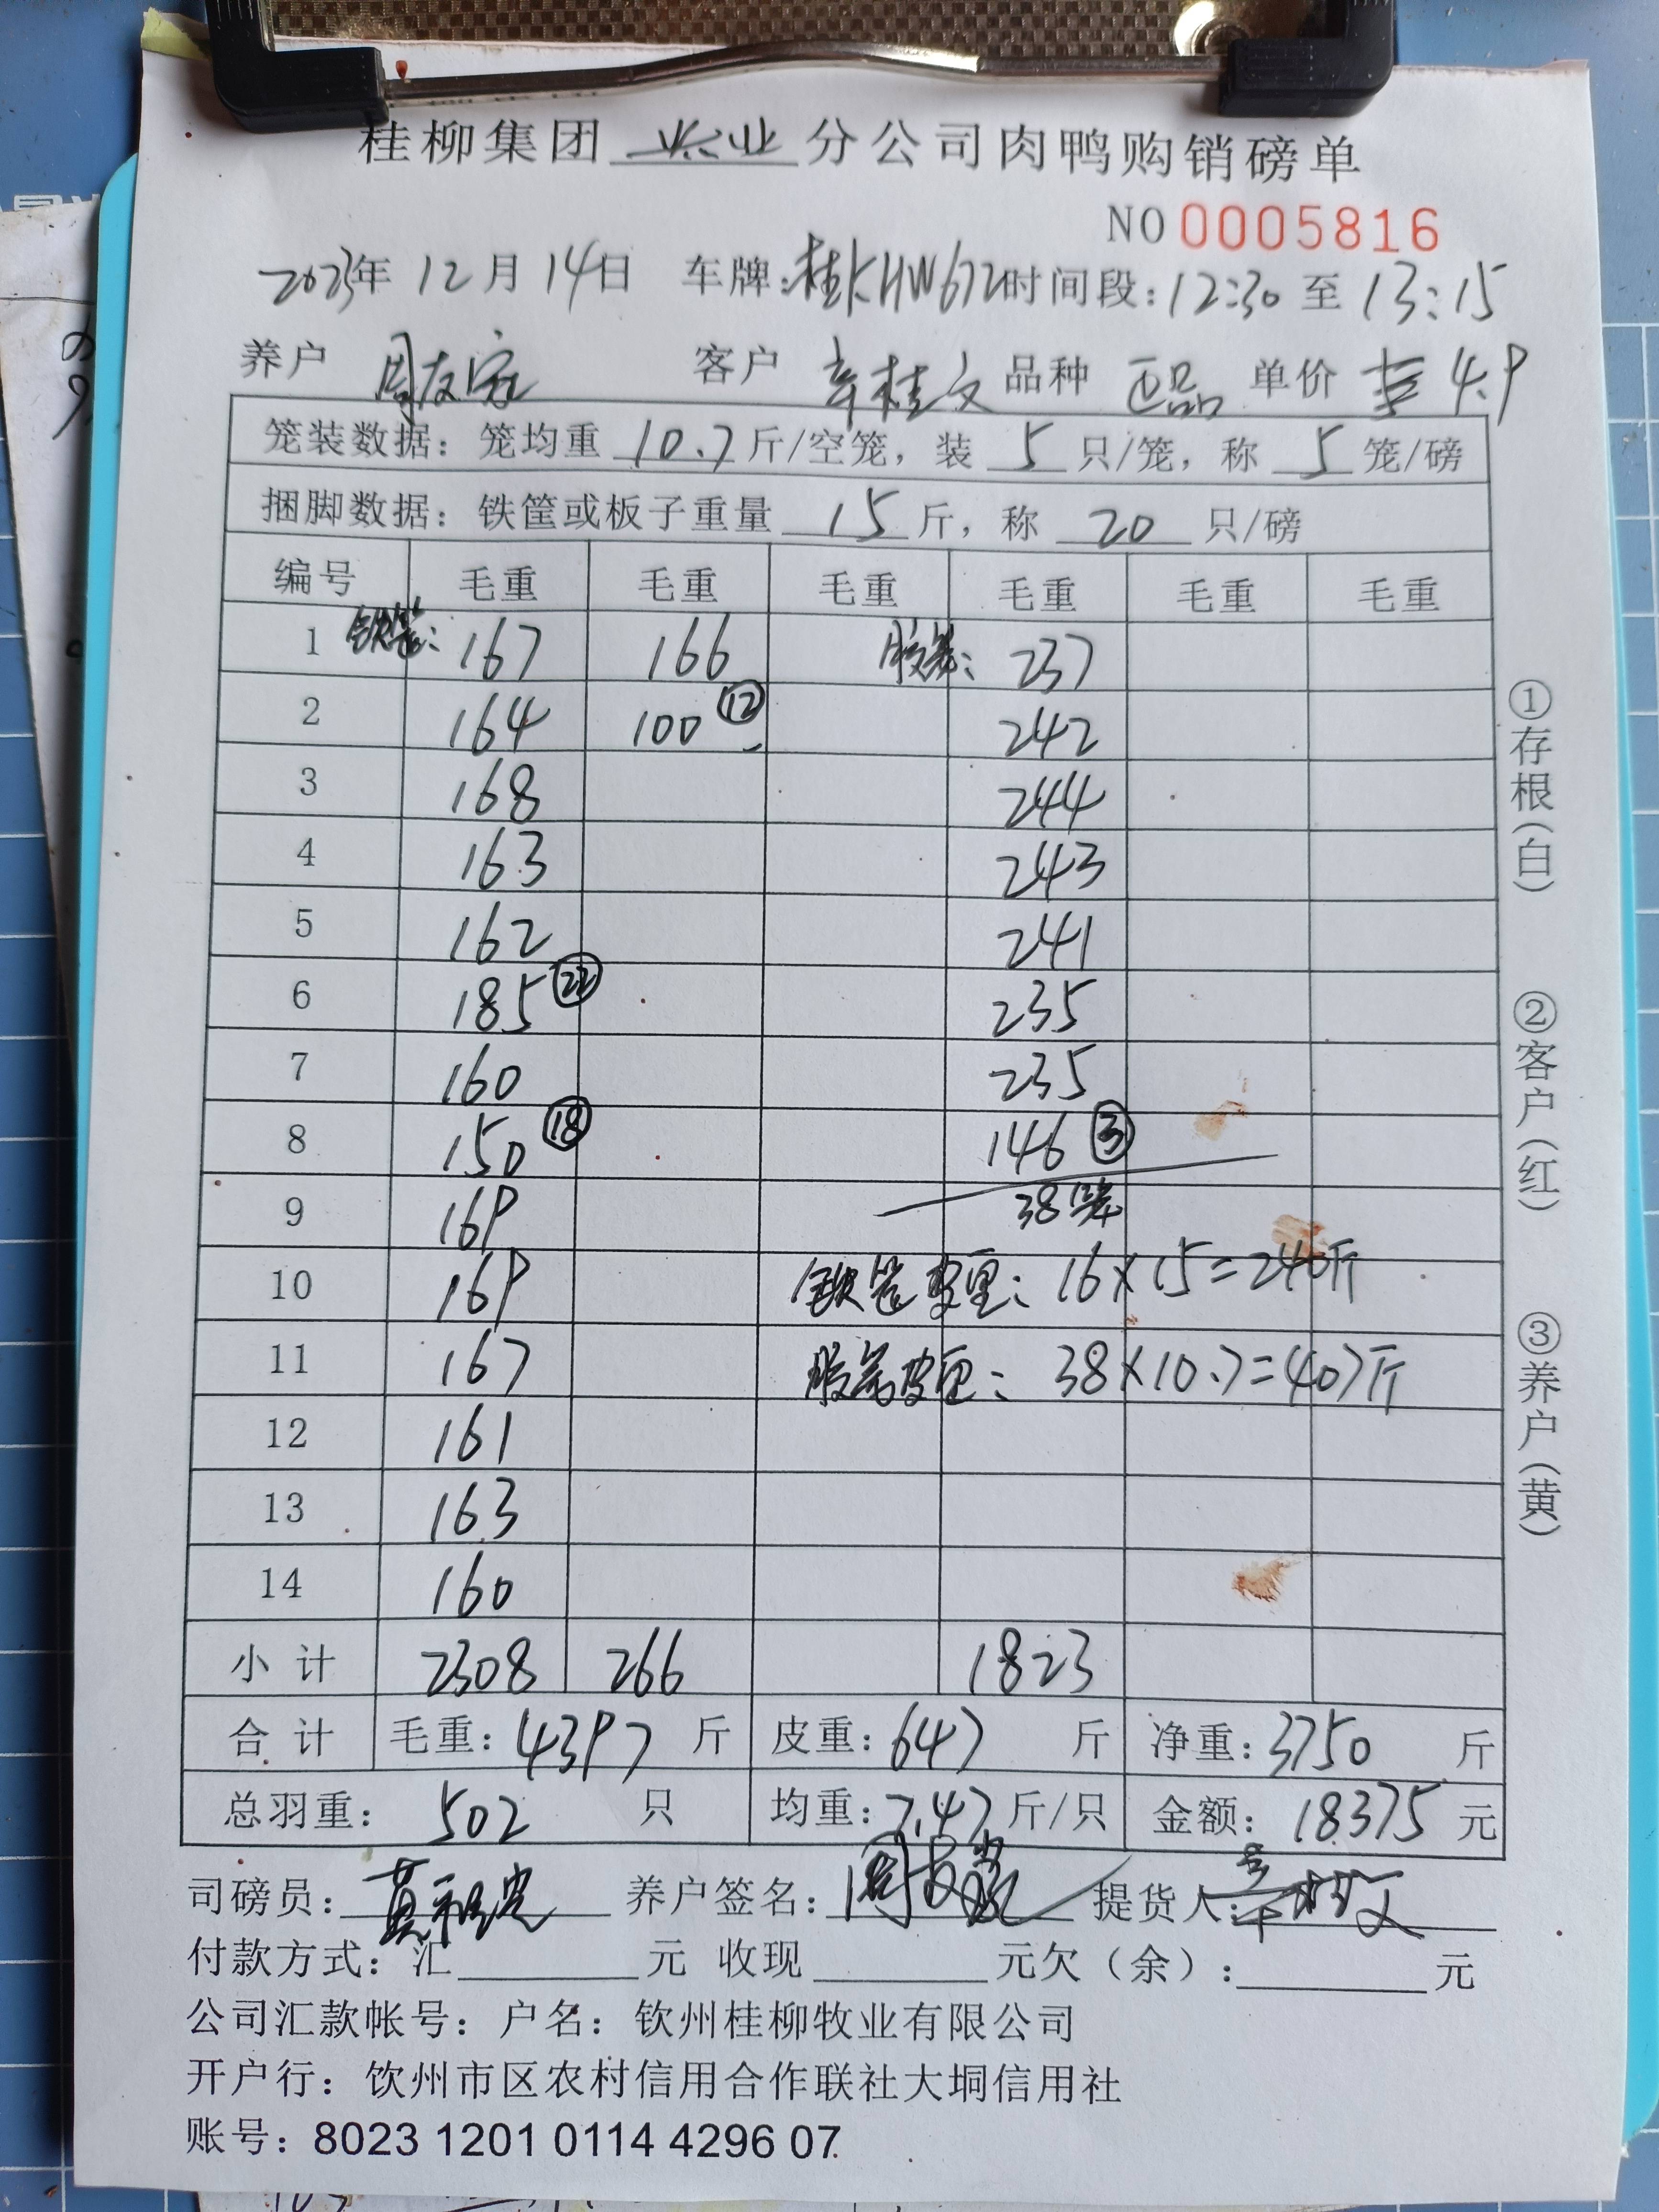 桂柳集团 兴业 分公司肉鸭购销磅单
NO 0005816
2023年 12月 14日 车牌:桂KHW672 时间段:12:30 至 13:15
养户 周友 客户 辛桂文 品种 正品 单价 4.9
笼装数据：笼均重 10.7 斤/空笼，装 5 只/笼，称 5 笼/磅
捆脚数据：铁筐或板子重量 15 斤，称 20 只/磅
编号 毛重 毛重 毛重 毛重 毛重 毛重
1 铁笼: 167 166 胶笼: 237
2 164 100 ⑫ 242
3 168 244
4 163 243
5 162 241
6 185 ㉒ 235
7 160 235
8 150 ⑱ 146 ③
9 169 38笼
10 169 铁笼皮重: 16×15=240斤
11 167 胶笼皮重: 38×10.7=407斤
12 161
13 163
14 160
小计 2308 266 1823
合计 毛重:4397 斤 皮重:647 斤 净重:3750 斤
总羽重: 502 只 均重:7.47 斤/只 金额: 18375 元
司磅员: 养户签名: 周友 提货人: 辛桂文
付款方式：汇 元 收现 元欠（余）: 元
公司汇款帐号：户名：钦州桂柳牧业有限公司
开户行：饮州市区农村信用合作联社大垌信用社
账号：8023 1201 0114 4296 07
①存根(白) ②客户(红) ③养户(黄)